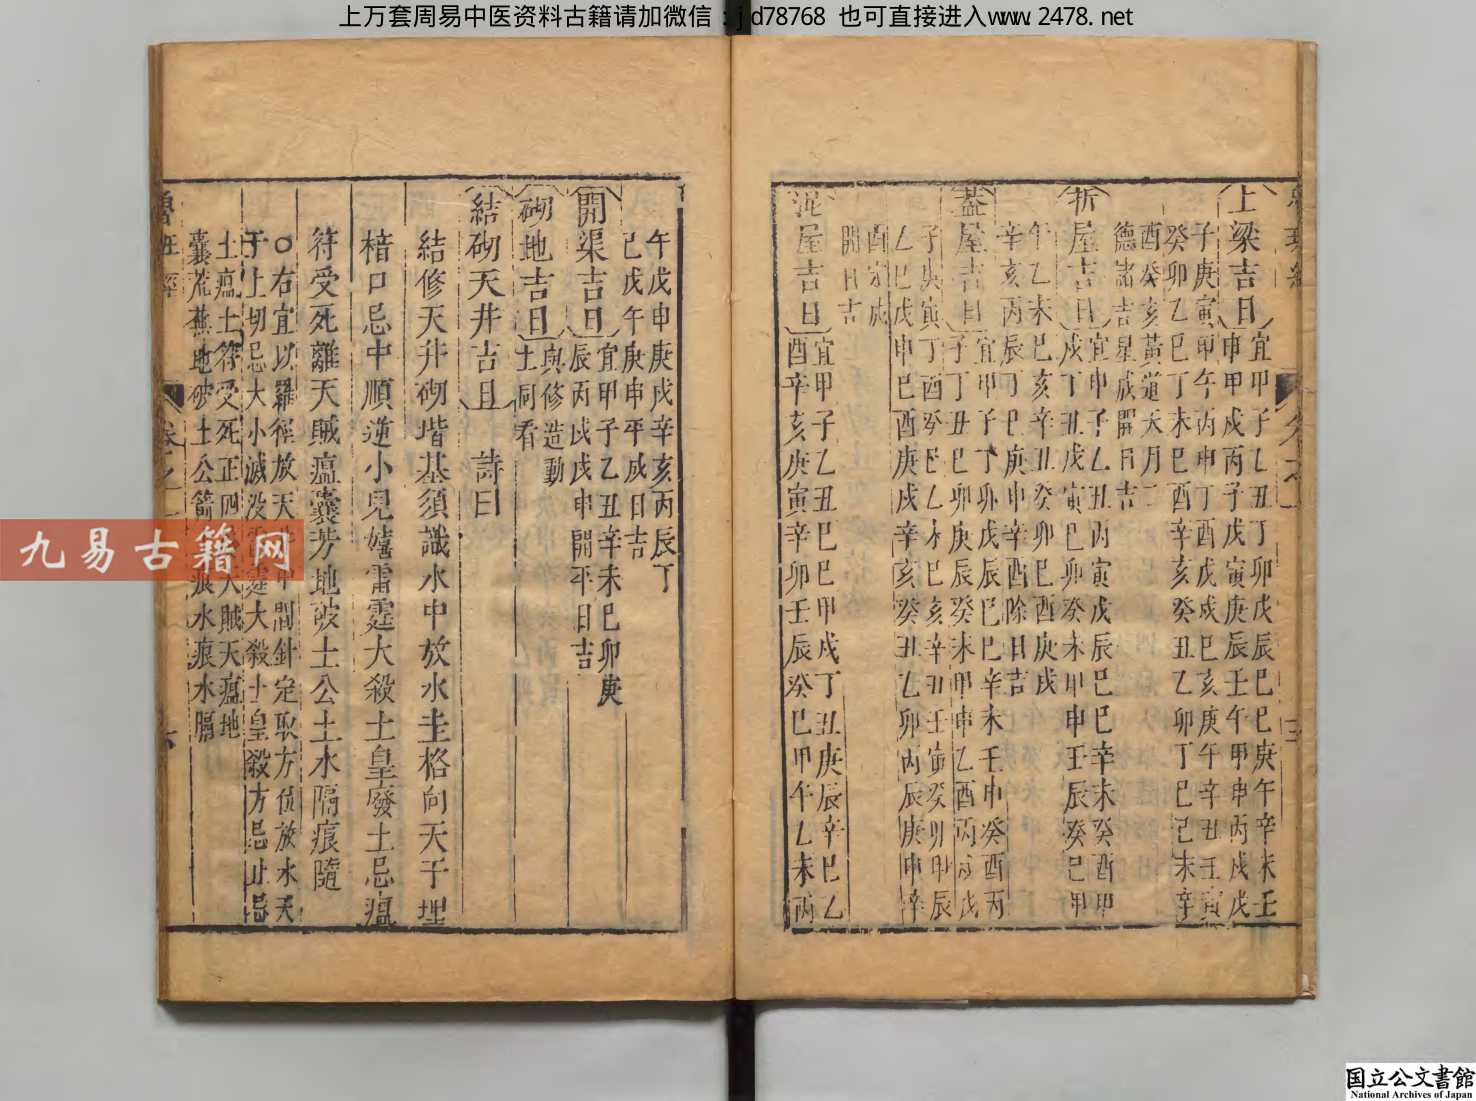 上万套周易中医资料古籍请加微信：jd78768 也可直接进入www.2478.net
上梁吉日
宜甲子乙丑丁卯戊辰己巳庚午辛未壬
申甲戌丙子戊寅庚辰壬午甲申丙戌戊
子庚寅甲午丙申丁酉戊戌己亥庚午辛丑壬寅
癸卯乙巳丁未己酉辛亥癸丑乙卯丁巳己未辛
酉癸亥黃道天月二
德諸吉星成開日吉
拆屋吉日
宜甲子乙丑丙寅戊辰己巳辛未癸酉甲
戌丁丑戊寅己卯癸未甲申壬辰癸巳甲
午乙未己亥辛丑癸卯己酉庚戌
辛亥丙辰丁巳庚申辛酉除日吉
蓋屋吉日
宜甲子丁卯戊辰己巳辛未壬申癸酉丙
子丁丑己卯庚辰癸未甲申乙酉丙戌戊
子庚寅丁酉癸巳乙未己亥辛丑壬寅癸卯甲辰
乙巳戊申己酉庚戌辛亥癸丑乙卯丙辰庚申辛
酉定成
開日吉
泥屋吉日
宜甲子乙丑己巳甲戌丁丑庚辰辛巳乙
酉辛亥庚寅辛卯壬辰癸巳甲午乙未丙
午戊申庚戌辛亥丙辰丁
己戊午庚申平成日吉
開渠吉日
宜甲子乙丑辛未己卯庚
辰丙戌戊申開平日吉
砌地吉日
與修造動
土同看
結砌天井吉日
詩曰
結修天井砌堦基須識水中放水圭格向天干埋
棓口忌中順逆小兒嬉雷霆大殺土皇廢土忌瘟
符受死離天賊瘟囊芳地破土公土水隔痕隨
○右宜以羅經放天井中間針定取方位放水天
干上切忌大小滅沒雷霆大殺土皇殺方忌止忌
土瘟土符受死正四廢天賊天瘟地
囊荒蕪地破土公箭土痕水痕水隔
九易古籍网
国立公文書館
National Archives of Japan